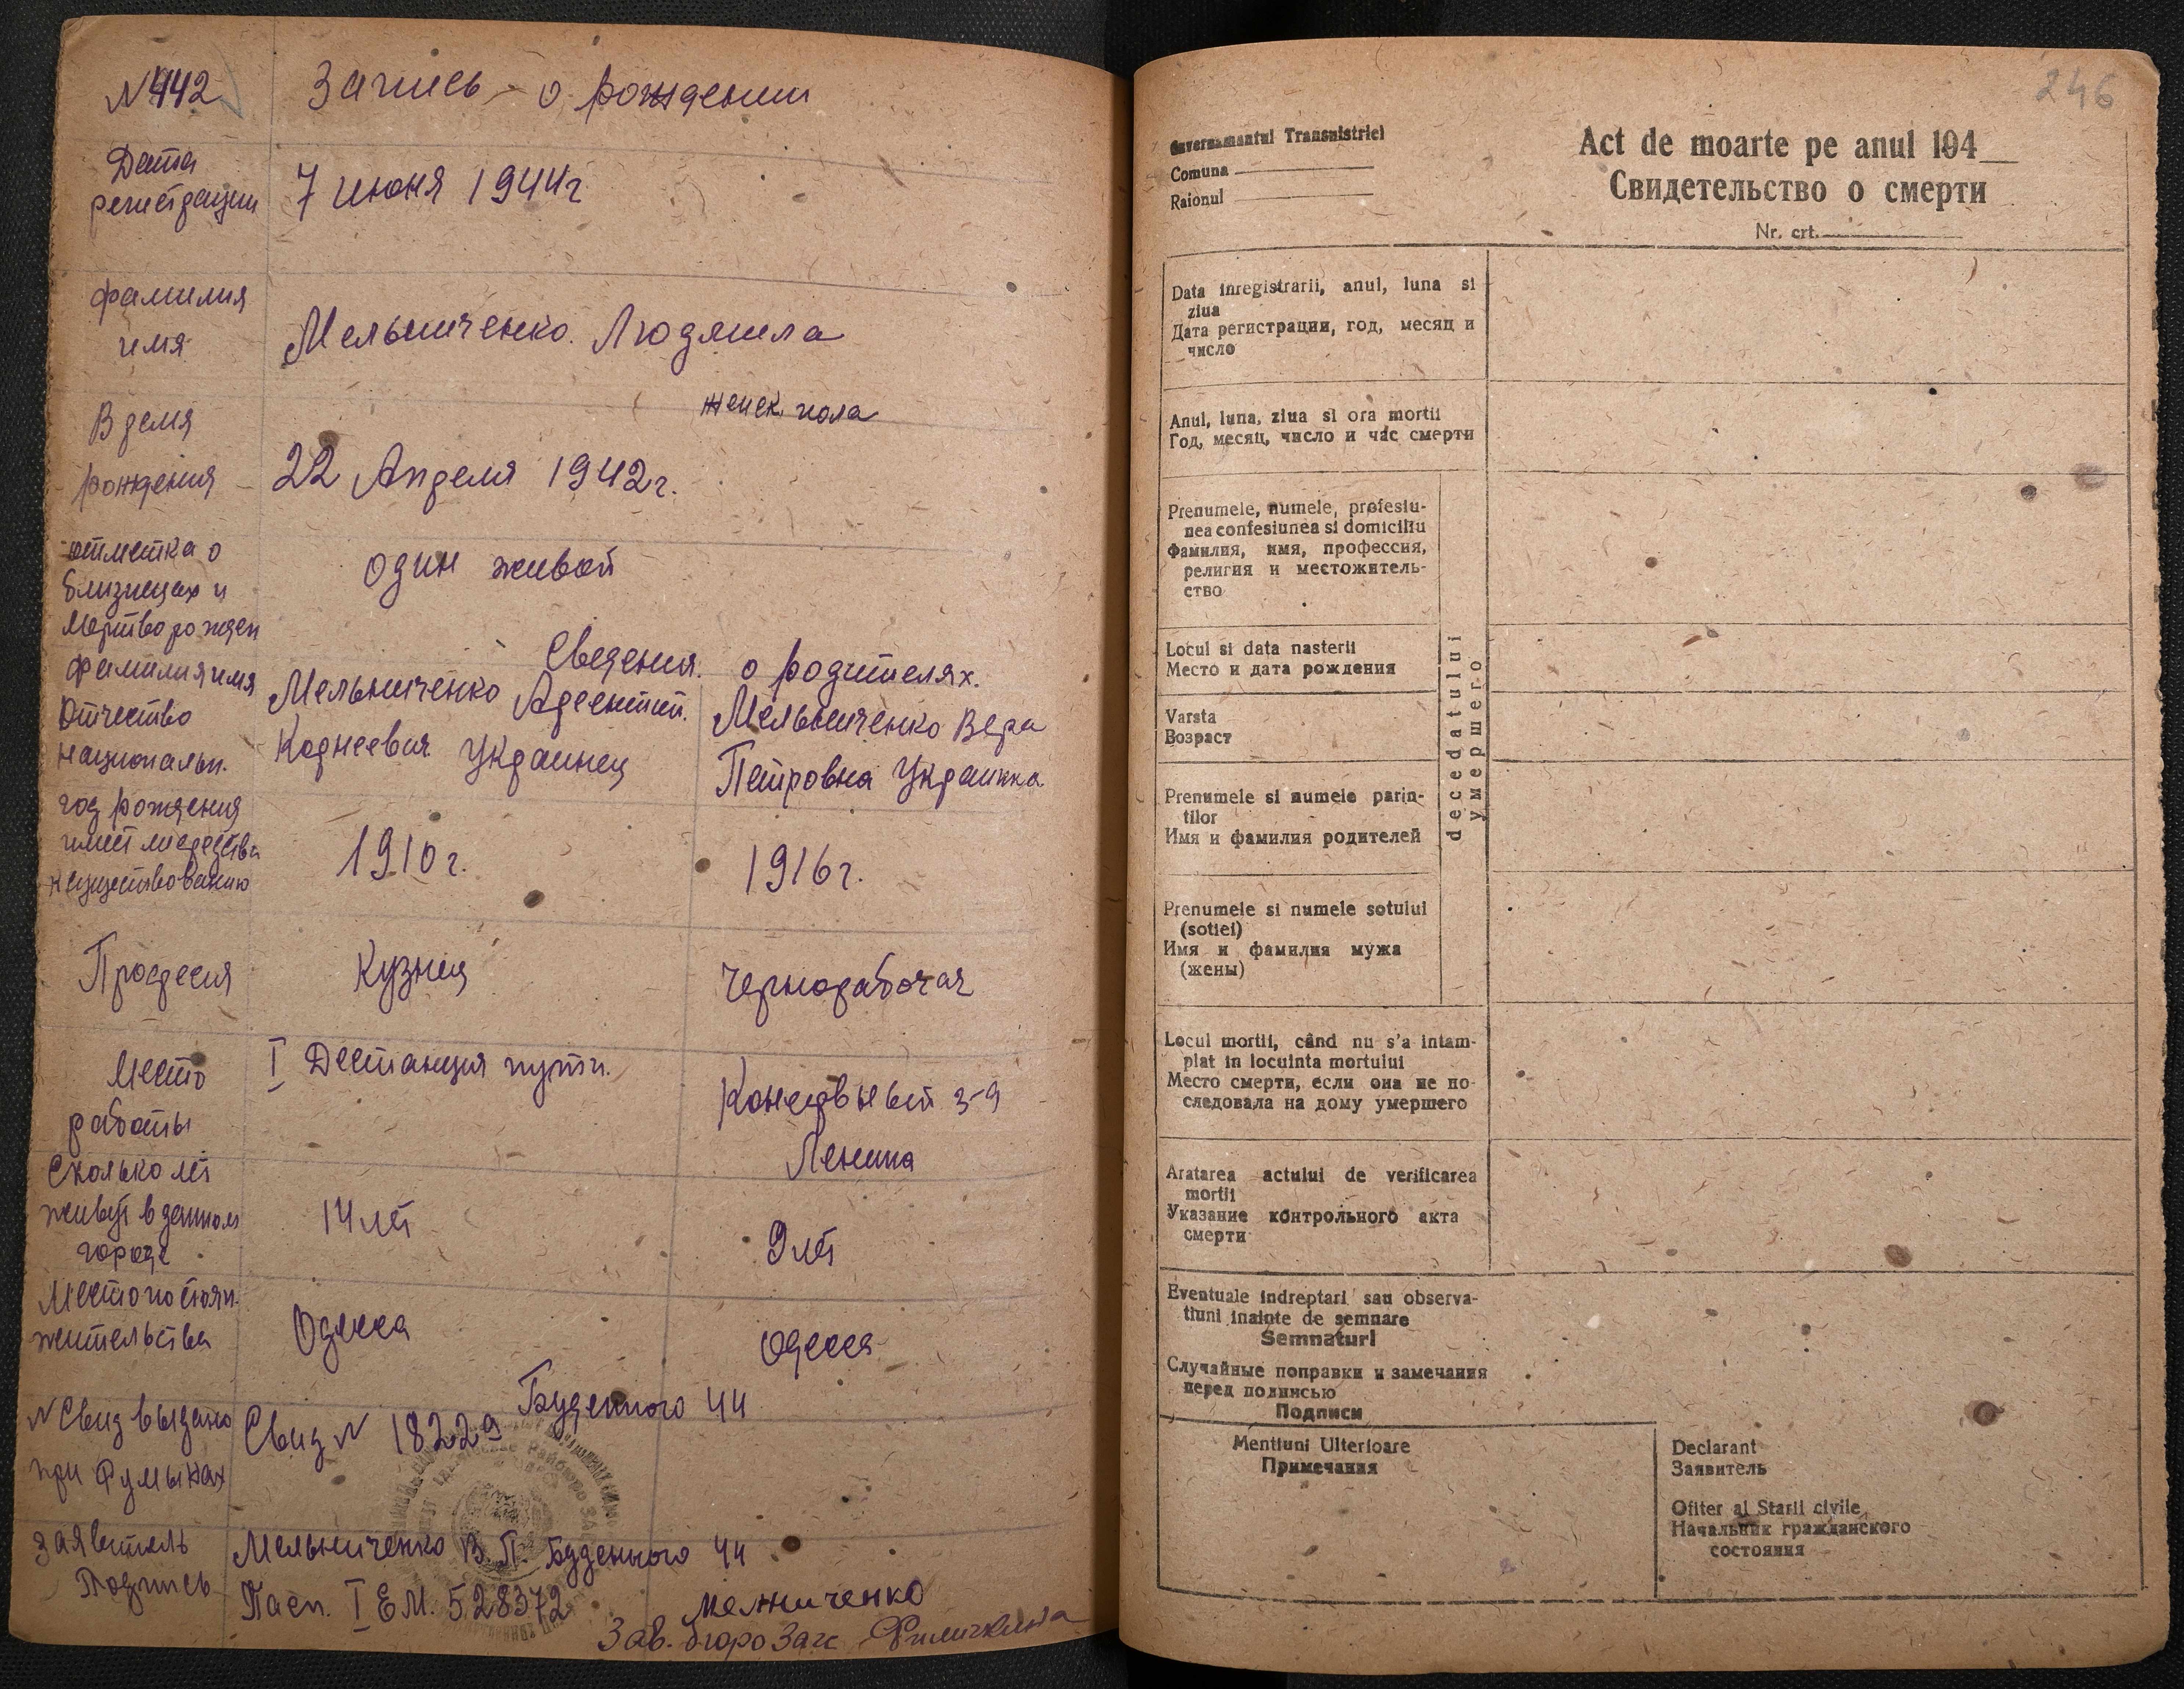 №442 Запись о рождении
Дата
регистрации 7 июня 1944г
фамилия
имя Мельниченко Людмила
женск. пола
Время
рождения 22 Апреля 1942г.
отметка о
близнецах и один живой
мертворожден
Сведения о родителях.
фамилия имя Мельниченко Мельниченко Вера
Отчество
национальн. Корнеевич Украинец Петровна Украинка
год рождения
имеет ли средства
к существованию 1910г. 1916г.
Професия Кузнец чернорабочая
Место I Дестанция пути.
работы з-д
Ленина
Сколько лет
живут в данном 14 лет 9 лет
городе
Место постоян.
жительства Одесса Одесса
Буденного 44
№ Свид выдано Свид № 18229
при Румынах
Заявитель Мельниченко В. П. Буденного 44
Подпись Пасп. I ЕМ. 528372
Мелниченко
Зав. бюро Загс
246
Guvernamantul Transnistriei
Comuna
Raionul
Act de moarte pe anul 194
Свидетельство о смерти
Nr. crt.
Data inregistrarii, anul, luna si
ziua
Дата регистрации, год, месяц и
число
Anul, luna, ziua si ora mortii
Год, месяц, число и час смерти
Prenumele, numele, profesiu-
nea confesiunea si domiciliu
Фамилия, имя, профессия,
религия и местожитель-
ство
Locul si data nasterii
Место и дата рождения
Varsta
Возраст
Prenumele si numele parin-
tilor
Имя и фамилия родителей
Prenumele si numele sotului
(sotiei)
Имя и фамилия мужа
(жены)
decedatului
умершего
Locul mortii, când nu s'a intam-
plat in locuinta mortului
Место смерти, если она не по-
следовала на дому умершего
Aratarea actului de verificarea
mortii
Указание контрольного акта
смерти
Eventuale indreptari sau observa-
tiuni inainte de semnare
Semnaturi
Случайные поправки и замечания
перед подписью
Подписи
Mentiuni Ulterioare
Примечания
Declarant
Заявитель
Ofiter al Starii civile
Начальник гражданского
состояния